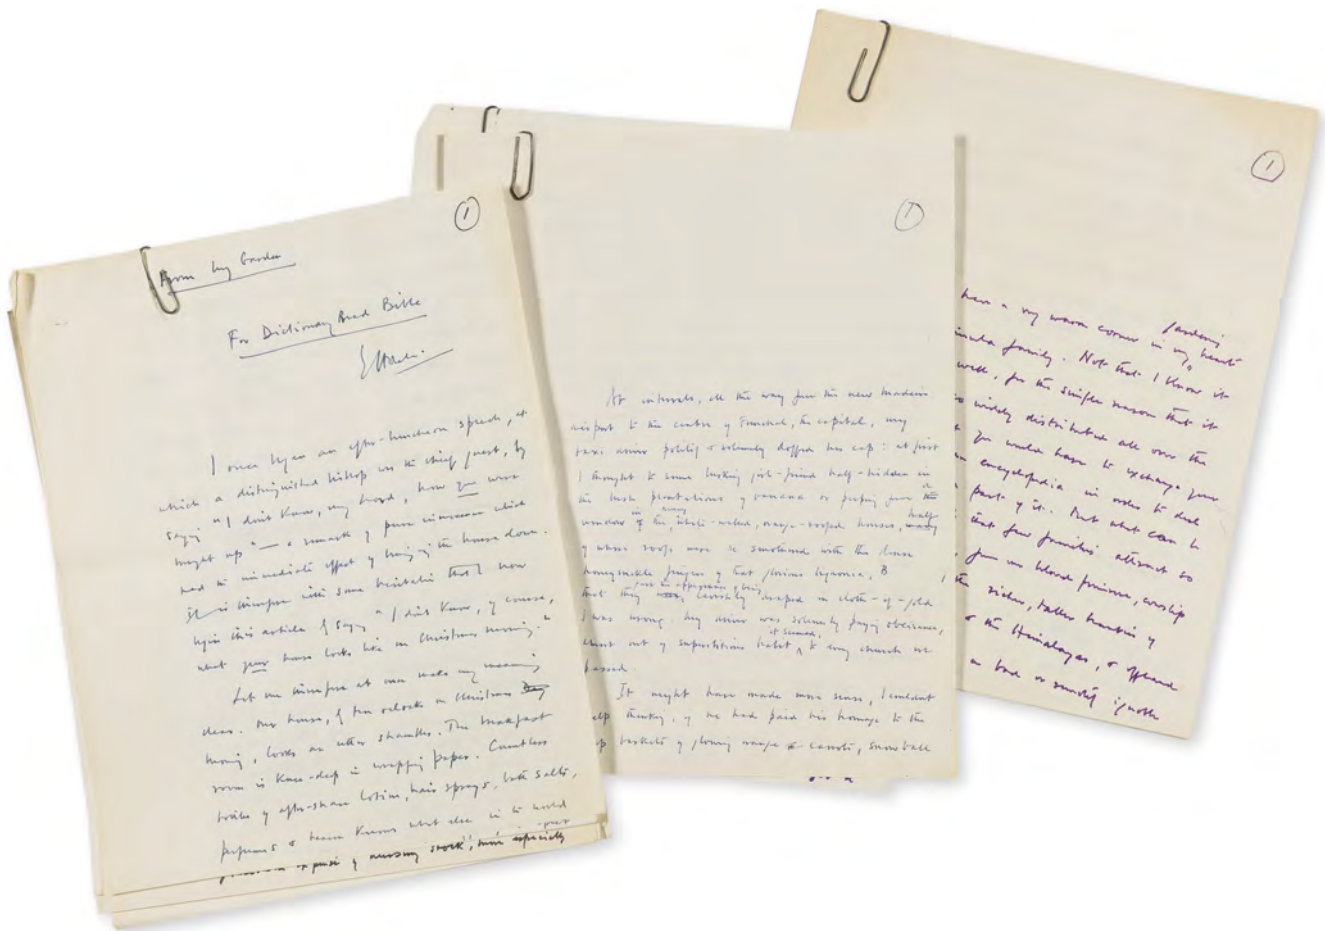 1
From my Garden
For Dictionary Read Bible
I once began an after-luncheon speech, at
which a distinguished bishop was the chief guest, by
saying "I don't know, my Lord, how you were
brought up" — a remark of pure innocence which
had the immediate effect of bringing the house down.
It is therefore with some hesitation that I now
begin this article by saying "I don't know, of course,
what your house looks like on Christmas morning."
Let me therefore at once make my meaning
clear. My house, by ten o'clock on Christmas Day
morning, looks an utter shambles. The breakfast
room is knee-deep in wrapping paper. Countless
bottles of after-shave lotion, hair sprays, bath salts,
perfumes & heaven knows what else in the world
expense of nursery stock, more especially
1
At intervals, all the way from the new Madeira
airport to the centre of Funchal, the capital, my
taxi driver politely & solemnly doffed his cap: at first
I thought to some lurking girl-friend half-hidden in
the lush plantations of banana or peeping from the
window of the many white-walled, orange-roofed houses, many half
of whose roofs were so smothered with the dense
honeysuckle fingers of that glorious bignonia, B
that they gave the appearance of being lavishly draped in cloth-of-gold
I was wrong. My driver was solemnly paying obeisance,
out of superstitious habit, it seemed, to every church we
passed.
It might have made more sense, I couldn't
help thinking, if he had paid his homage to the
baskets of glowing orange carrots, snowball
1
have a very warm corner in my gardening heart
family. Not that I know it
well, for the simple reason that it
so widely distributed all over the
you would have to exchange your
encyclopedia in order to deal
part of it. But what can be
that few families attract so
from no blood pressure, worship
the richer, taller beauties of
& the Himalayas, & offhand